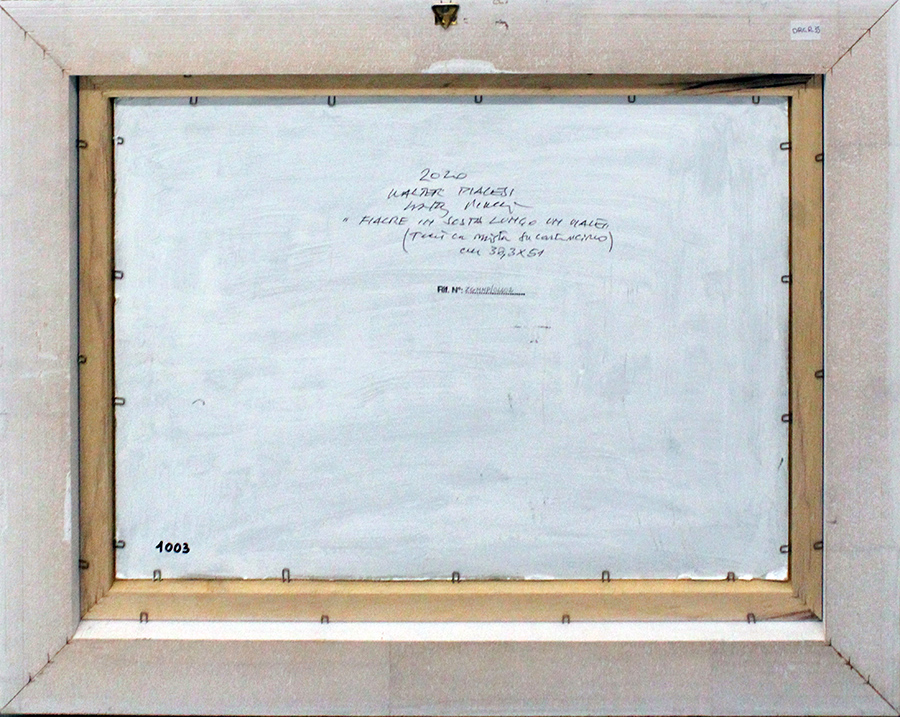 2020
WALTER PIACESI
"FIACRE IN SOSTA LUNGO UN VIALE"
(Tecnica mista su cartoncino)
cm 38,3x51
Rif. N°:
1003